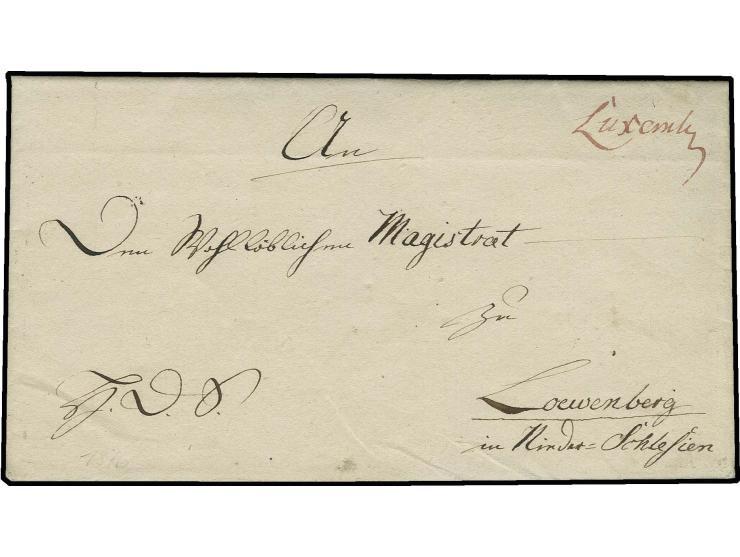 Luxemb
An
Den Wohllöblichen Magistrat
zu
H. D. S.
Loewenberg
in Nieder=Schlesien